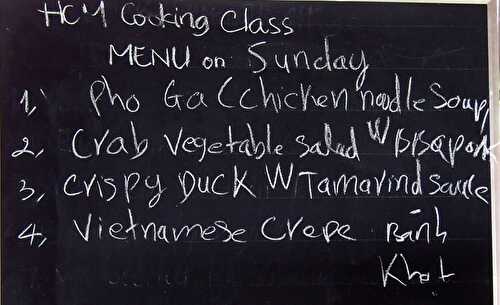 HCM Cooking Class
MENU on Sunday
1, Pho Ga (Chicken noodle Soup)
2, Crab vegetable salad W BBQ pork
3, Crispy Duck W Tamarind Sauce
4, Vietnamese Crepe Bánh
Khot